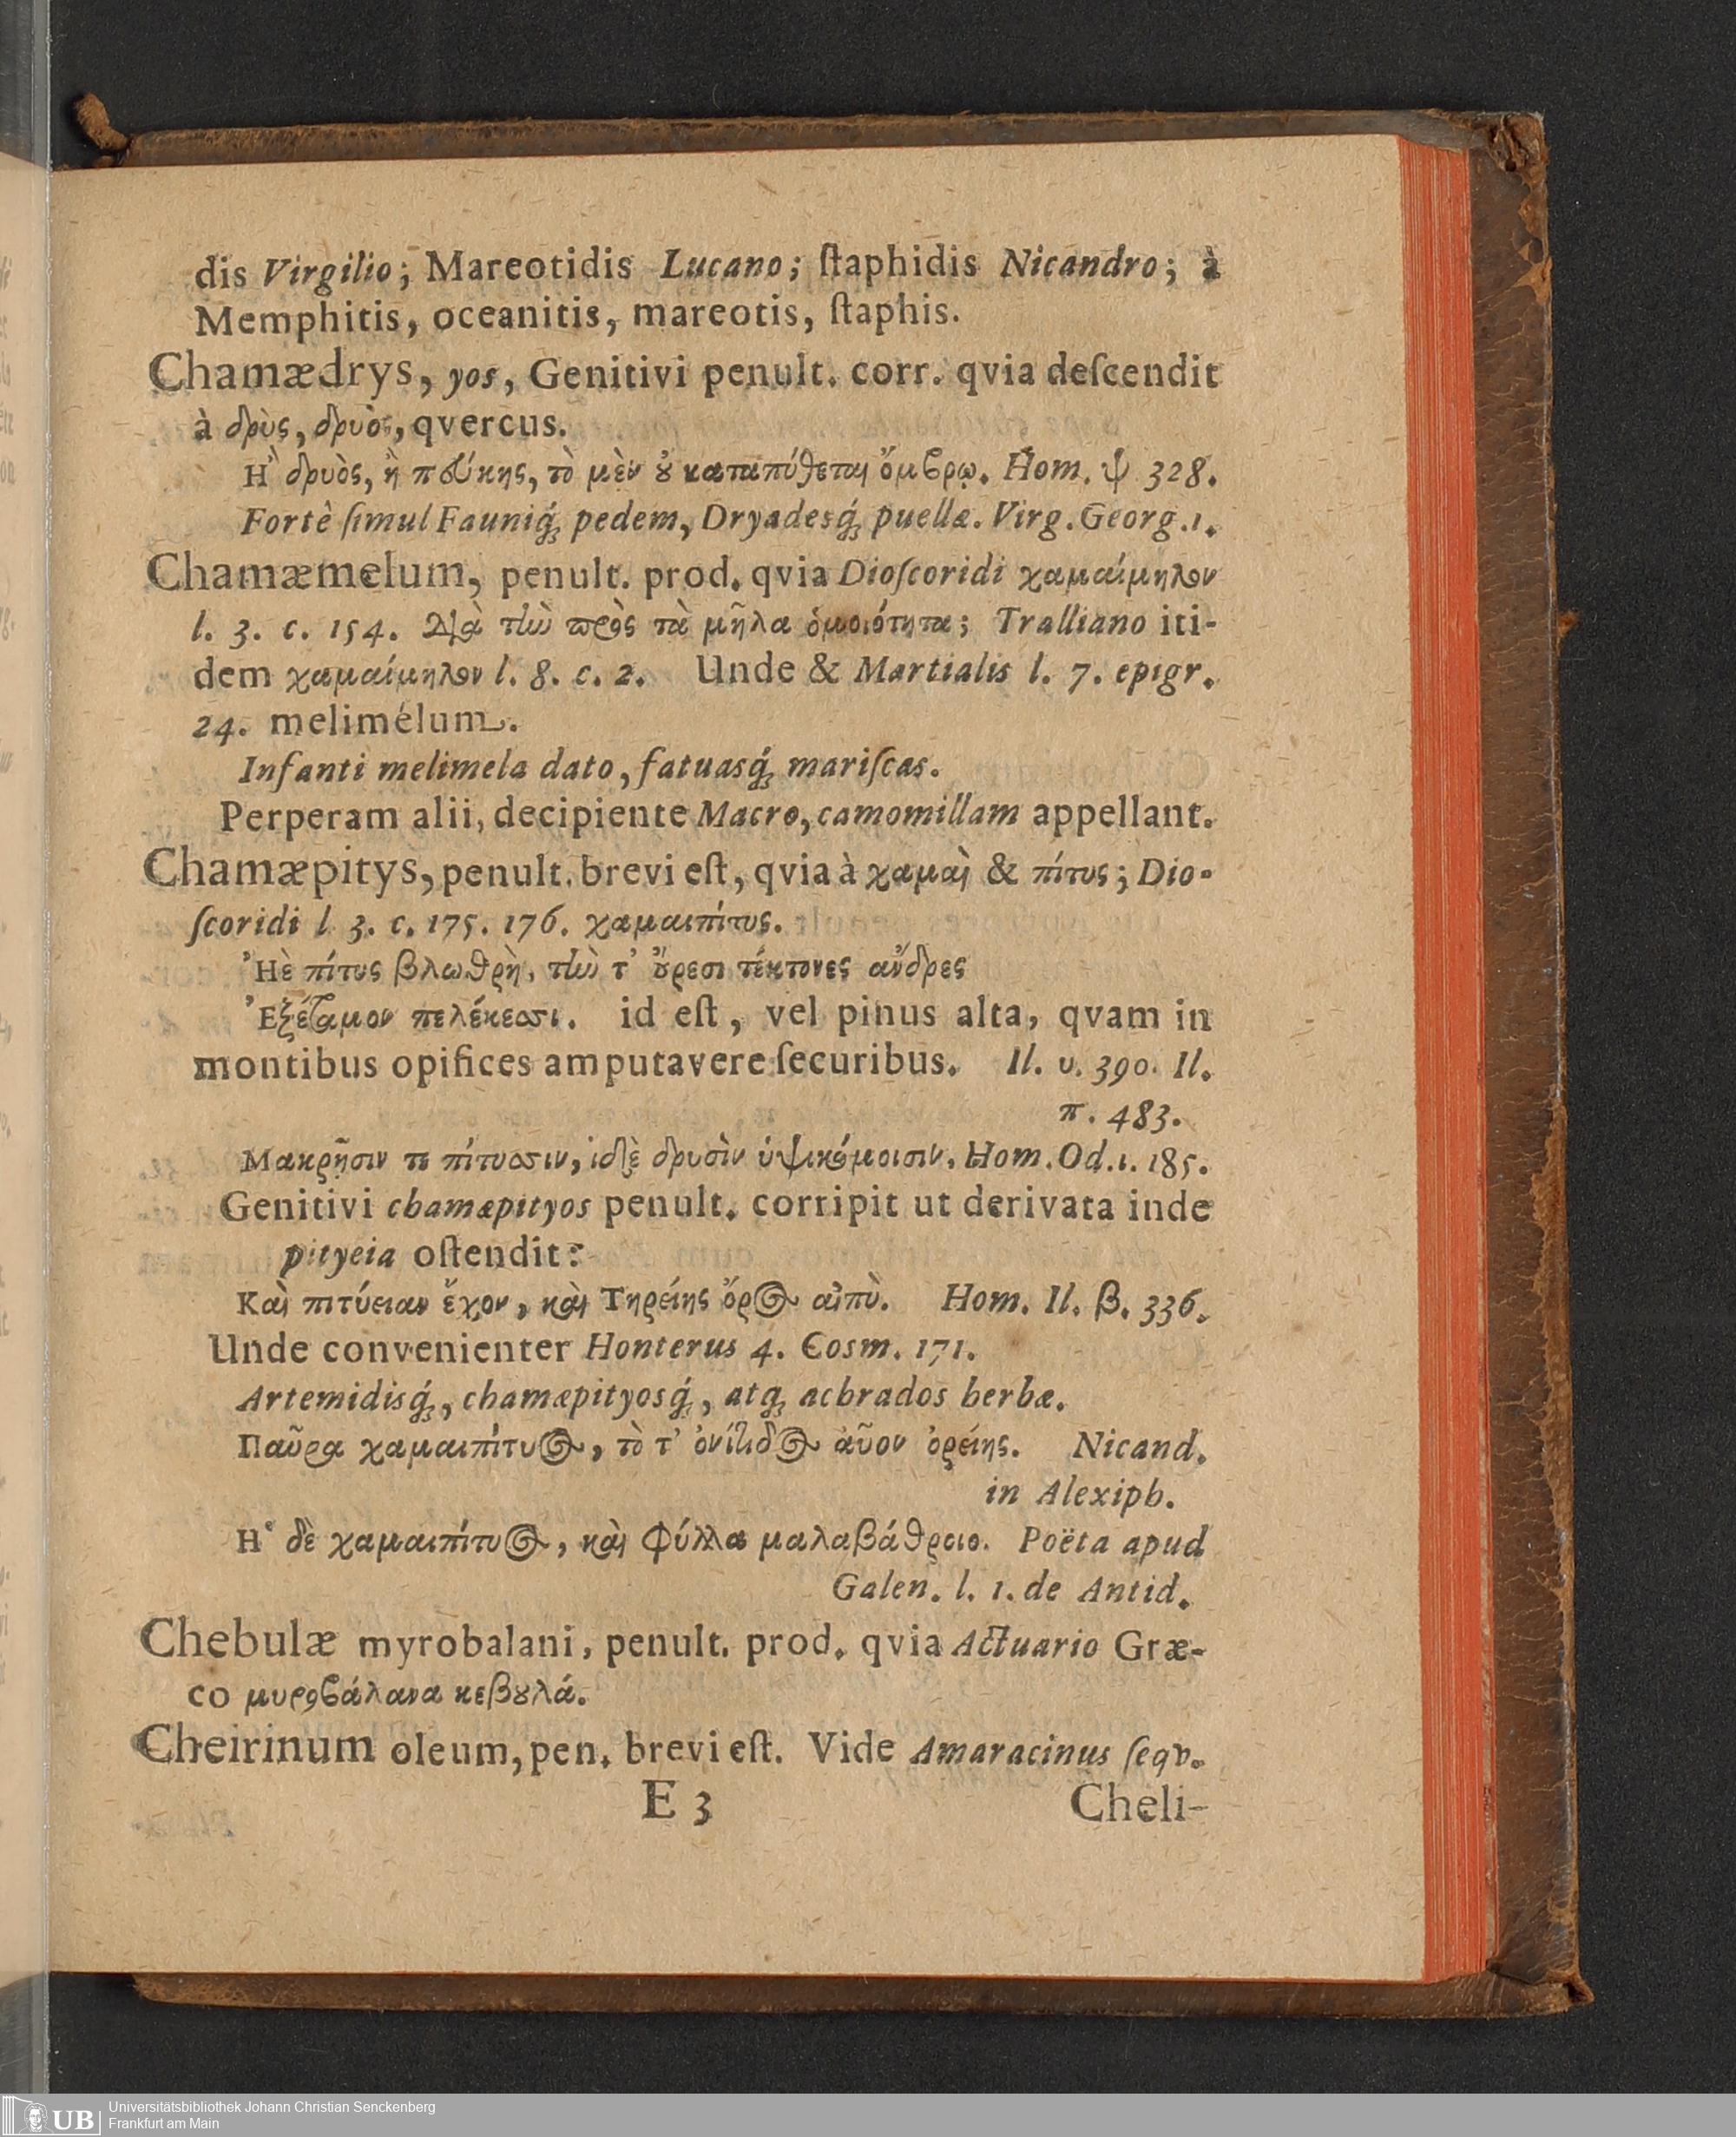 dis Virgilio; Mareotidis Lucano; ſtaphidis Nicandro; à
Memphitis, oceanitis, mareotis, ſtaphis.
Chamædrys, yos, Genitivi penult. corr. qvia deſcendit
à δρὺς, δρυὸς, qvercus.
Ἢ δρυὸς, ἢ πεύκης, τὸ μὲν ȣ καταπύθεται ὄμβρῳ. Hom. ψ 328.
Fortè ſimul Fauniq́ꝫ pedem, Dryadesq́ꝫ puellæ. Virg. Georg. 1.
Chamæmelum, penult. prod. qvia Dioſcoridi χαμαίμηλον
l. 3. c. 154. Διὰ τὴν πρὸς τὰ μῆλα ὁμοιότητα; Tralliano iti-
dem χαμαίμηλον l. 8. c. 2. Unde & Martialis l. 7. epigr.
24. melimélum.
Infanti melimela dato, fatuasq́ꝫ mariſcas.
Perperam alii, decipiente Macro, camomillam appellant.
Chamæpitys, penult. brevi eſt, qvia à χαμαὶ & πίτυς; Dio-
ſcoridi l 3. c. 175. 176. χαμαιπίτυς.
Ἠὲ πίτυς βλωθρὴ, τὴν τ' ȣ̓́ρεσι τέκτονες ἄνδρες
Ἐξέταμον πελέκεσσι. id eſt, vel pinus alta, qvam in
montibus opifices amputavere ſecuribus. Il. υ. 390. Il.
π. 483.
Μακρῇσιν τε πίτυσσιν, ἰδὲ δρυσὶν ὑψικόμοισιν. Hom. Od. ι. 185.
Genitivi chamæpityos penult. corripit ut derivata inde
pityeia oſtendit:
Καὶ πιτύειαν ἔχον, καὶ Τηρείης ὄρος αἰπύ. Hom. Il. β. 336.
Unde convenienter Honterus 4. Cosm. 171.
Artemidisq́ꝫ, chamæpityosq́ꝫ, atqꝫ achrados herbæ.
Παῦρα χαμαιπίτυος, τὸ τ' ὀνίτιδος αὖον ὀρείης. Nicand.
in Alexiph.
Ἡ δὲ χαμαιπίτυος, καὶ φύλλα μαλαβάθροιο. Poëta apud
Galen. l. 1. de Antid.
Chebulæ myrobalani, penult. prod. qvia Actuario Græ-
co μυροβάλανα κεβȣλά.
Cheirinum oleum, pen. brevi eſt. Vide Amaracinus ſeqv.
E 3 Cheli-
UB Universitätsbibliothek Johann Christian Senckenberg
Frankfurt am Main